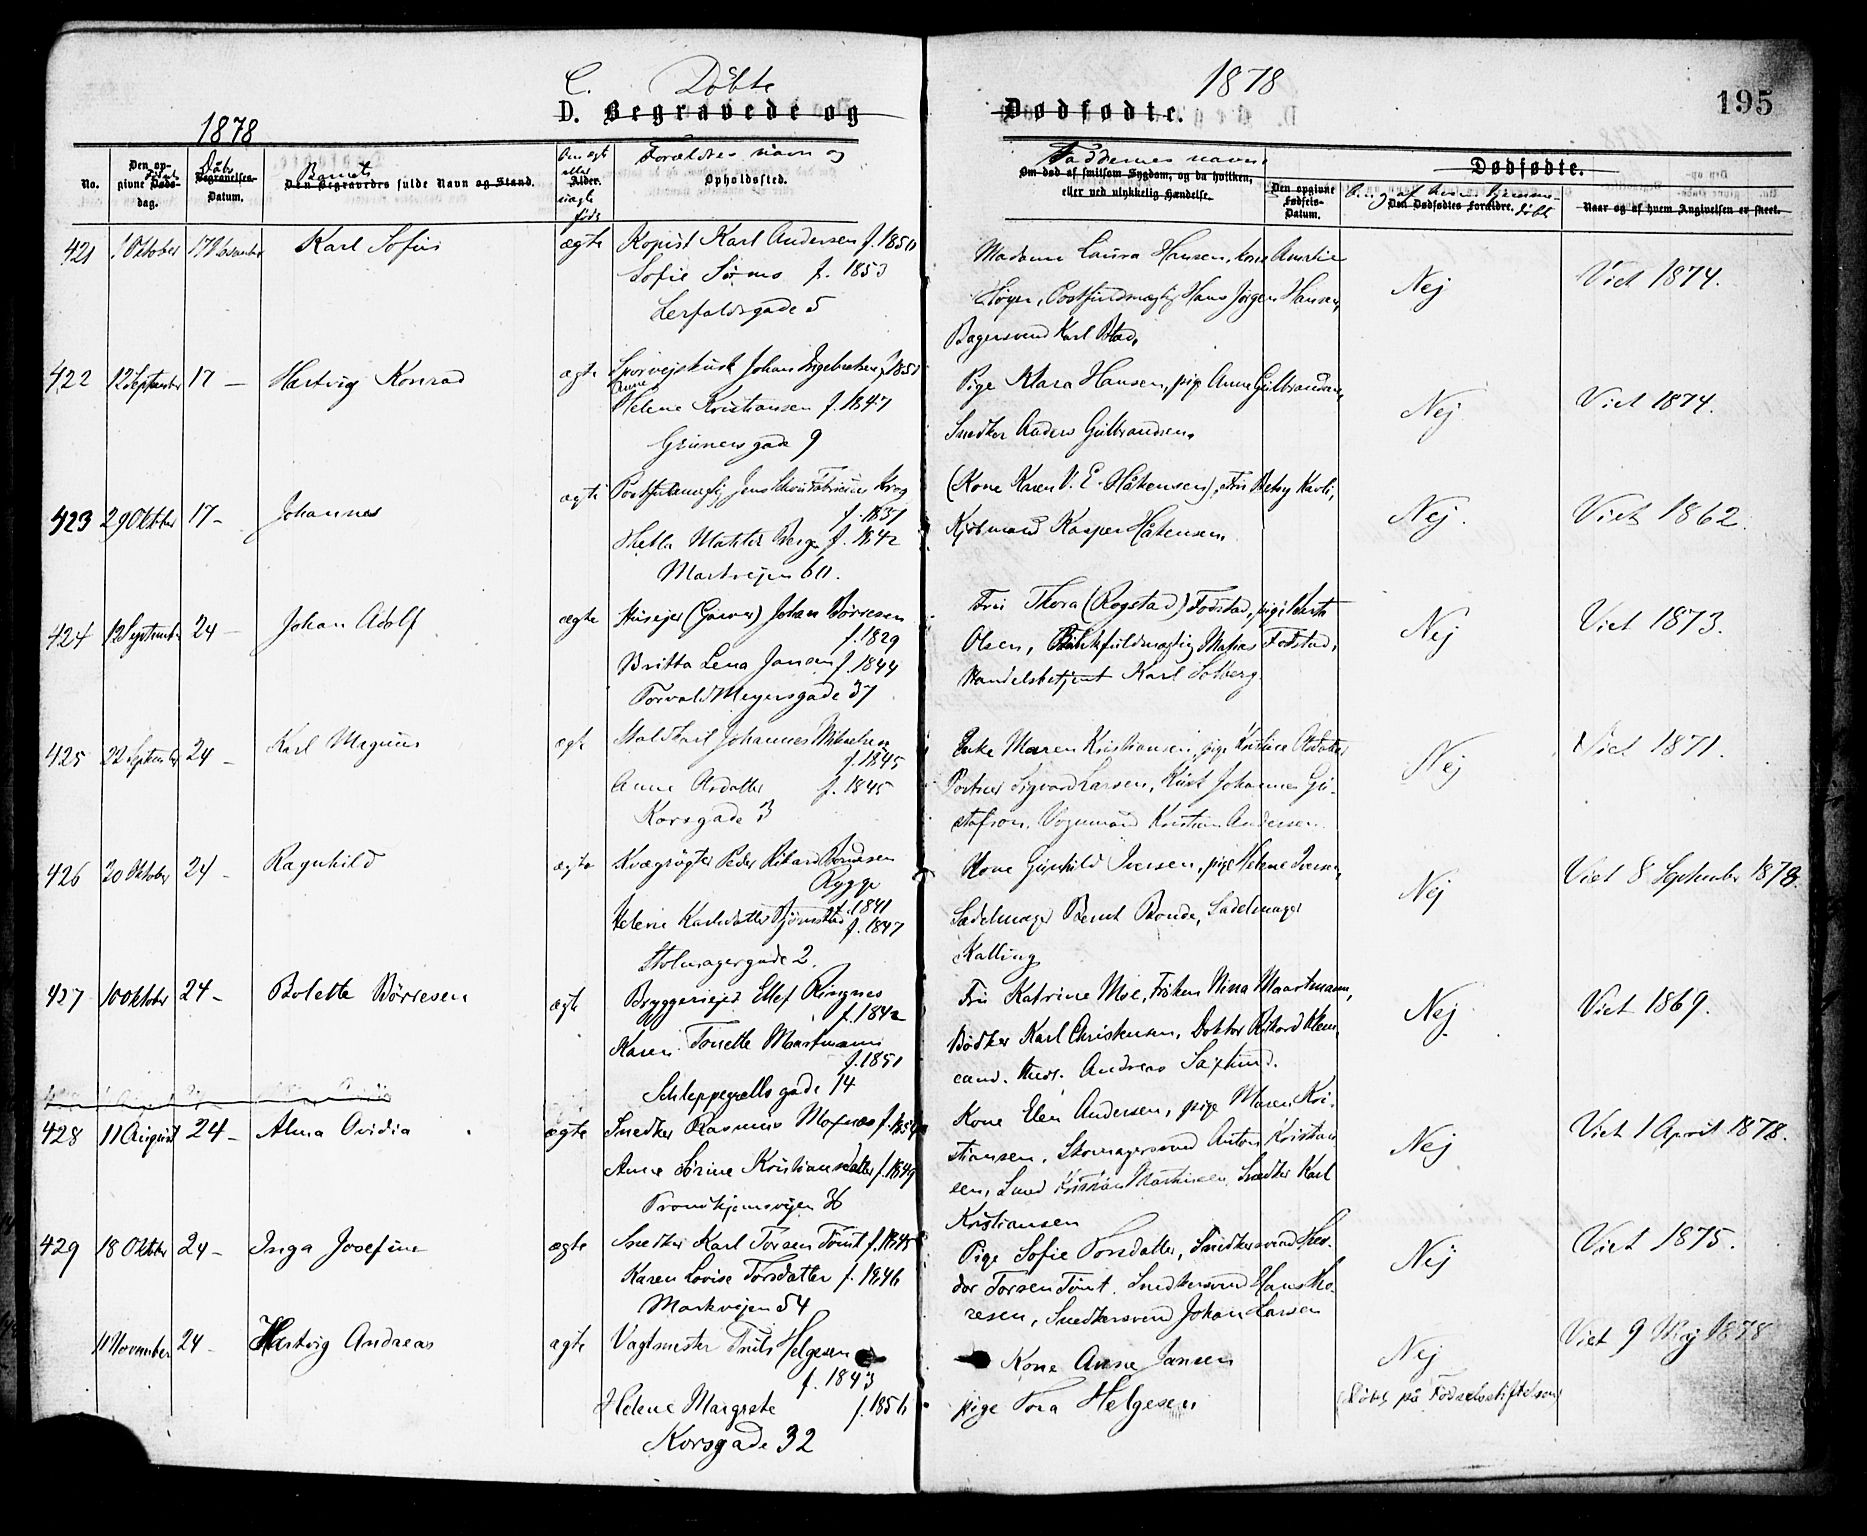 C. Döbte
1878
195
D. Begravede og Dødfødte.
1878
No.
Den op-
givne Døds-
dag.
Döbs
Begravelses-
Datum.
Barnets
Den Begravedes fulde Navn og Stand.
Om ægte
eller
Alder.
uægte
født
Forældres navn og
Opholdssted.
Faddernes navne
Om død af smitsom Sygdom, og da hvilken,
eller ved ulykkelig Hændelse.
Dødfødte.
Den opgivne
Fødsels-
Datum.
Den Dødfødtes Forældre.
Naar og af hvem Angivelsen er skeet.
421 1 Oktober 17 November Karl Sofus ægte Kopist Karl Andersen f. 1850
Sofie f. 1853
5
Madame Laura Hansen, kone Amalie
Høyer, Postfuldmægtig Hans Jørgen Hansen,
Bagersvend Karl
Nej Viet 1874.
422 12 September 17 — Hartvig Konrad ægte Sporvejskusk Johan Ingebretsen f. 1851
Anne
Helene Kristiansen f. 1847
Grünersgade 9
Pige Klara Hansen, pige Anne Gulbrandsen,
Snedker Anders Gulbrandsen.
Nej Viet 1874.
423 29 Oktber 17 - Johannes ægte Postfuldmægtig Jens Fabricius Krog
f. 1837
Mathilde Berge f. 1842
Markvejen 60.
(Kone Karen V. E. Håkensen), Fru Betsy
Kjöbmand Kasper Håkensen,
Nej. Viet 1862.
424 12 September 24 — Johan Adolf ægte Husejer (Garver) Johan Börresen
f. 1829
Britta Lena Jansen f. 1844
Torvald Meyersgade 37
Fru Thora (Rogstad) Fodstad, pige
Olsen, Bankfuldmægtig Matias Fodstad,
Handelsbetjent Karl Solberg
Nej Viet 1873.
425 22 September 24 - Karl Magnus ægte Staldkarl Johannes Mikaelsen
f. 1845
Anne f. 1845
Korsgade 3
Enke Maren Kristiansen, pige Kristine
Portner Sigvard Larsen, Kusk Johannes Gu-
stafson, Vognmand Kristian Andersen.
Nej Viet 1871.
426 20 Oktober 24 - Ragnhild ægte Kvægrögter Peder Rikard
Rygge
f. 1841
Helene Karlsdatter Bjørnstad f. 1847
Skomagergade 2.
Kone Gunhild Iversen, pige Helene Iversen,
Sadelmager Bernt Bonde, Sadelmager
Kalling
Nej Viet 8 September 1878.
427 10 Oktober 24 - Bolette Börresen ægte Bryggeriejer Ellef Ringnes
f. 1842
Karen Tonette Maartmann
f. 1851
Schleppegrells gade 14
Fru Katrine Moe, Fröken Nina Maartmann,
Bödker Karl Christensen, Doktor Rikard
cand. theol. Andreas
Nej Viet 1869.
428 11 August 24 - Alma Ovidia ægte Snedker Rasmus
Anne Serine Kristiansdatter f. 1849
Trondhjemsvejen
Kone Elen Andersen, pige Maren Kri-
stiansen, Skomagersvend Anton Kristian
sen, Smed Kristian Martinsen, Snedker Karl
Kristiansen
Nej Viet 1 April 1878.
429 18 Oktber 24 - Inga Josefine ægte Snedker Karl Torsen Tömt f. 1845
Karen Lovise Torsdatter f. 1846
Markvejen 54
Pige Sofie Torsdatter, Snedkersvend
dor Torsen Tömt. Snedkersvend Hans
resen, Snedkersvend Johan Larsen
Nej Viet 1875.
11 November 24 - Hartvig Andreas ægte Vagtmester Truls Helgesen
f. 1843
Helene Margrete f. 1856
Korsgade 32
Kone Anne Jansen
pige Tora Helgesen
Nej
(Döbt på Födselsstiftelsen)
Viet 9 Maj 1878